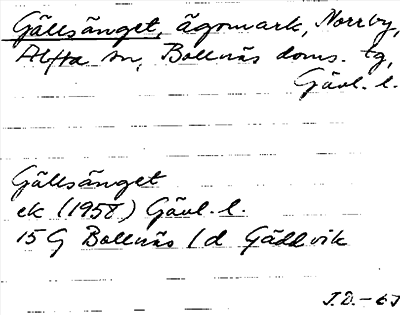 Gällsänget, ägomark, Norrby,
Alfta sn, Bollnäs doms. tg,
Gävl. l.
Gällsänget
ek (1958) Gävl. l.
15 G Bollnäs 1 d Gäddvik
J.D. - 63